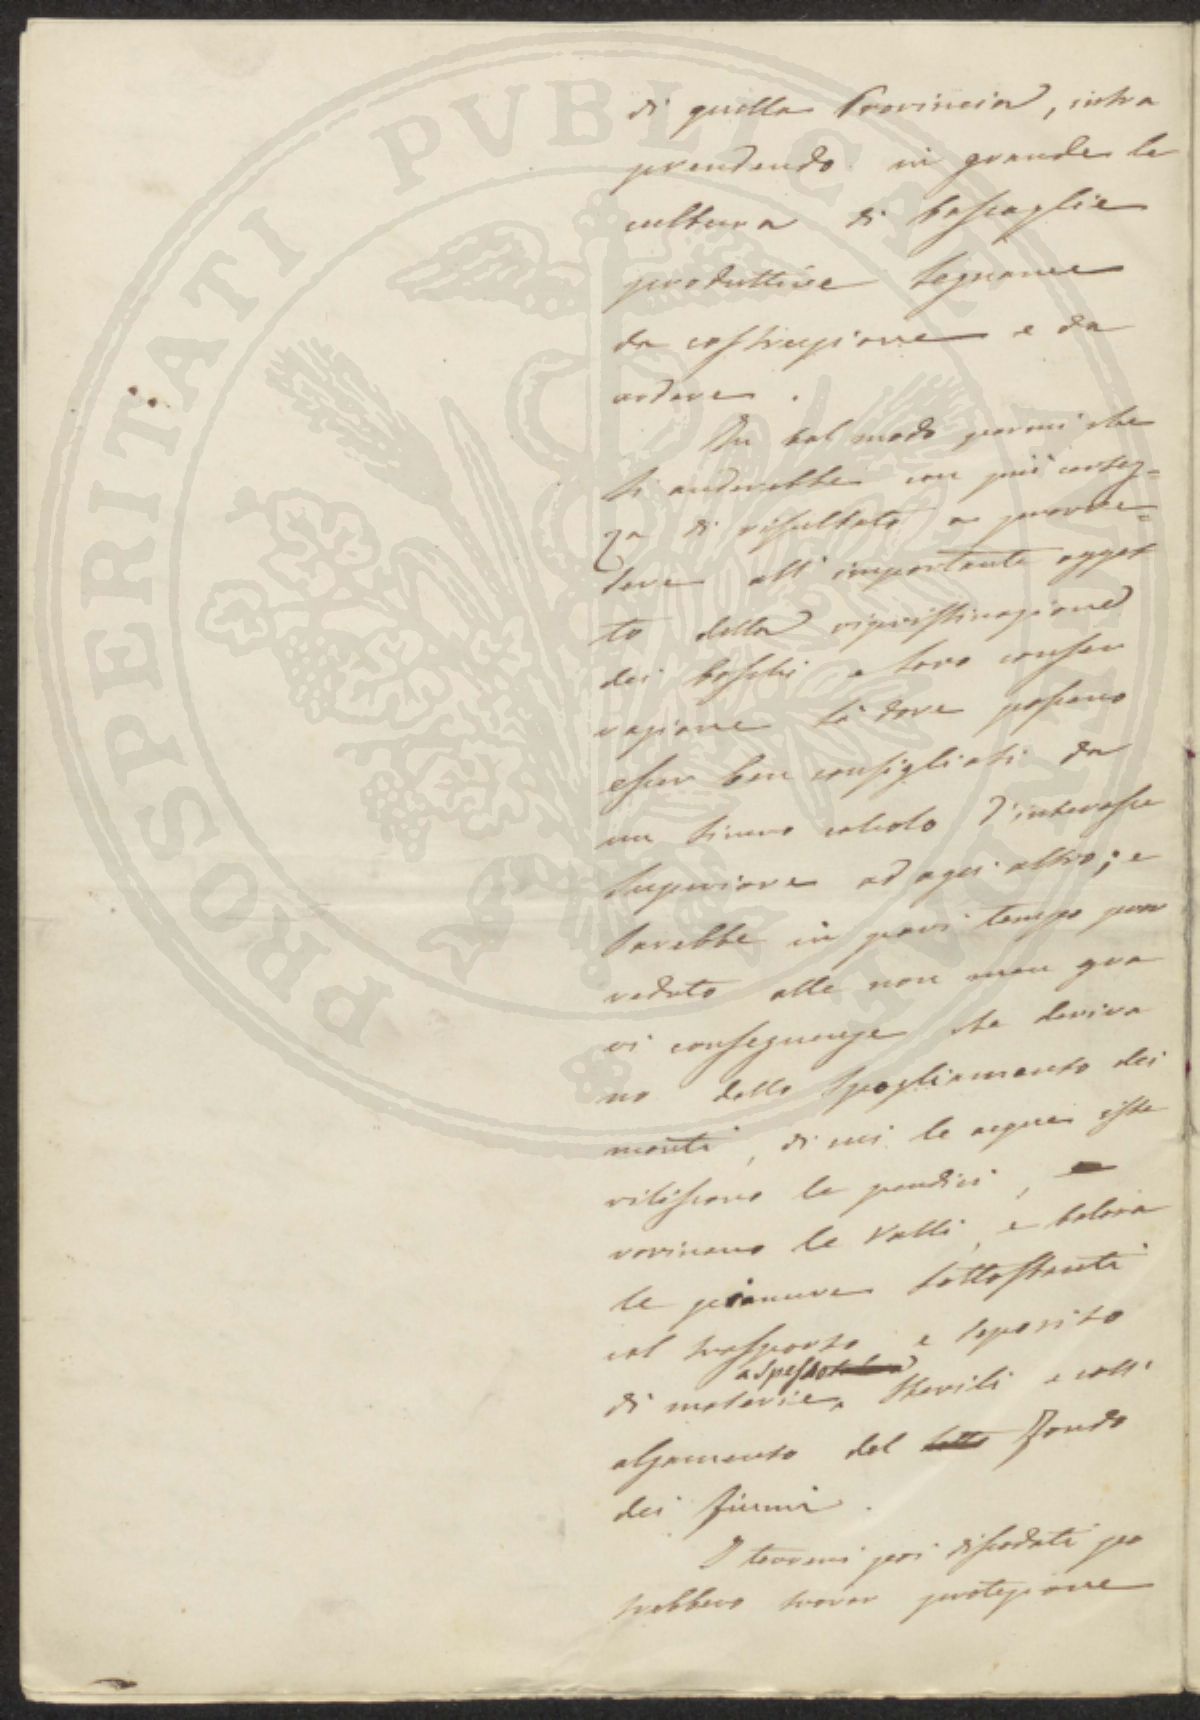 di quella Provincia, intra
prendendo in grande la
cultura di boscaglie
produttive legname
da costruzione e da
ardere.
In tal modo parmi che
si anderebbe con più certez=
za di risultato a provve=
dere all'importante ogget
to della ripristinazione
dei boschi e loro conser
vazione là dove possano
esser ben consigliati da
un sicuro calcolo d'interesse
superiore ad ogni altro; e
sarebbe in pari tempo prov
veduto alle non men gra
vi conseguenze che deriva
no dallo spogliamento dei
monti, di cui le acque iste
riliscono le pendici,
rovinano le Valli, e talora
le pianure sottostanti
col trasporto e deposito
di materie, adpesso sterili e coll'
alzamento del letto fondo
dei fiumi.
I terreni poi dissodati po
trebbero trovar protezione
PROSPERITATI PVBLICAE AVGENDAE